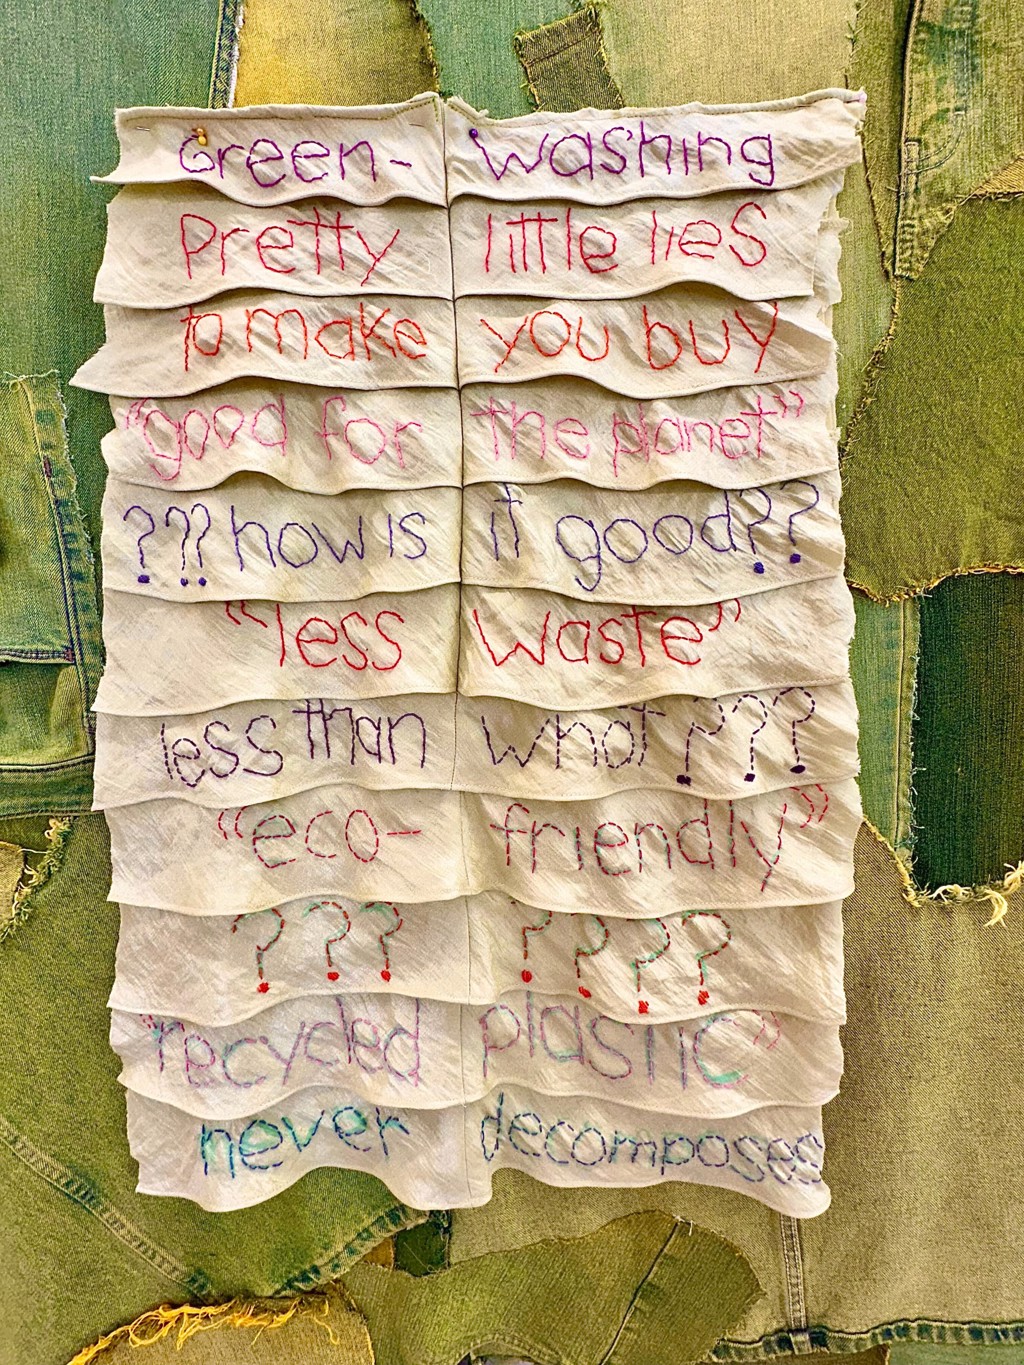 Green- washing
Pretty little lies
to make you buy
"good for the planet"
??? how is it good??
"less waste"
less than what???
"eco- friendly"
??? ????
"recycled plastic"
never decomposes